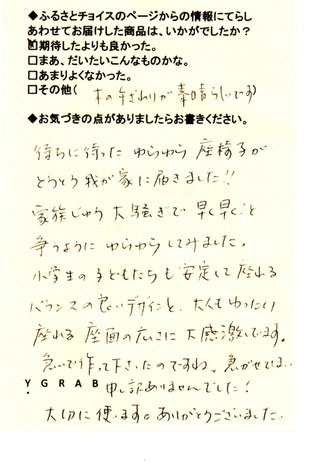 ◆ふるさとチョイスのページからの情報にてらし
あわせてお届けした商品は、いかがでしたか?
☑期待したよりも良かった。
□まあ、だいたいこんなものかな。
□あまりよくなかった。
□その他( 木の手ざわりが素晴らしいです)
◆お気づきの点がありましたらお書きください。
待ちに待った ゆらゆら 座椅子が
とうとう我が家に届きました!!
家族じゅう大騒ぎで 早く早く!と
争うように ゆらゆらしてみました。
小学生の子どもたちも 安定して座れる
バランスの良いデザインと、大人もゆったり
座れる 座面の広さに大感激です。
急いで作って下さったのですね。急がせてしまい
申し訳ありませんでした!
YGRAB
大切に使います。ありがとうございました。